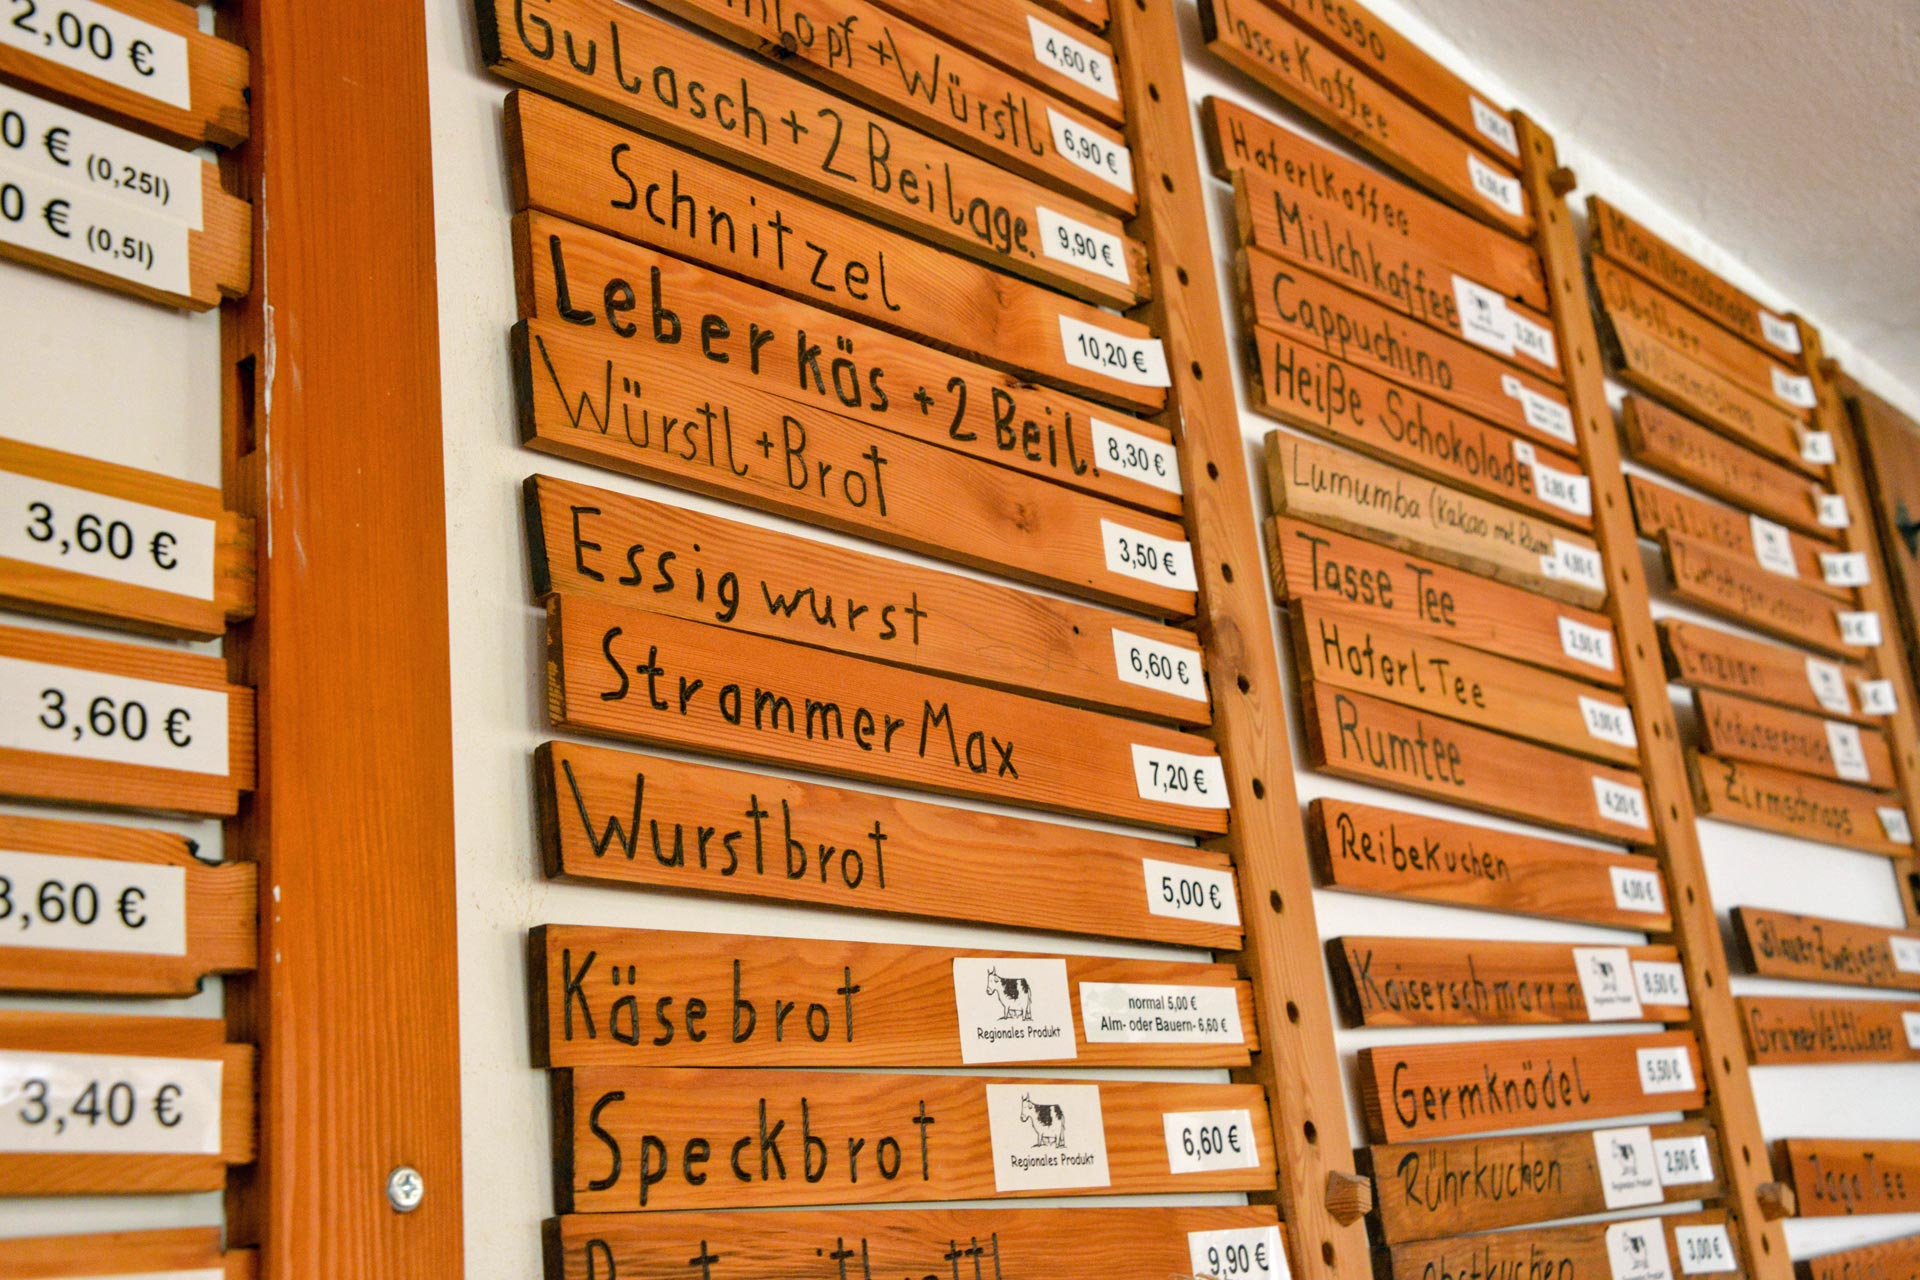 2,00 €
0 € (0,25l)
0 € (0,5l)
3,60 €
3,60 €
3,60 €
3,40 €
4,60 €
+Würstl 6,90 €
Gulasch+2Beilage. 9,90 €
Schnitzel 10,20 €
Leberkäs +2 Beil. 8,30 €
Würstl+Brot 3,50 €
Essigwurst 6,60 €
Strammer Max 7,20 €
Wurstbrot 5,00 €
Käsebrot Regionales Produkt normal 5,00 €
Alm- oder Bauern- 6,60 €
Speckbrot Regionales Produkt 6,60 €
9,90 €
Tasse Kaffee 2,90 €
Haferlkaffee
Milchkaffee 3,20 €
Cappuchino
Heiße Schokolade 2,80 €
Lumumba (Kakao mit Rum) 4,80 €
Tasse Tee 2,50 €
Haferl Tee 3,00 €
Rumtee 4,20 €
Reibekuchen 4,00 €
Kaiserschmarrn Regionales Produkt 8,50 €
Germknödel 5,50 €
Rührkuchen Regionales Produkt 2,60 €
Obstkuchen 3,00 €
Marillenschnaps
Obstler
Williamsbirne
Nusslikör
Enzian
Kräuterenzian
Zirmschnaps
Blauer Zweigelt
Grüner Veltliner
Jaga Tee